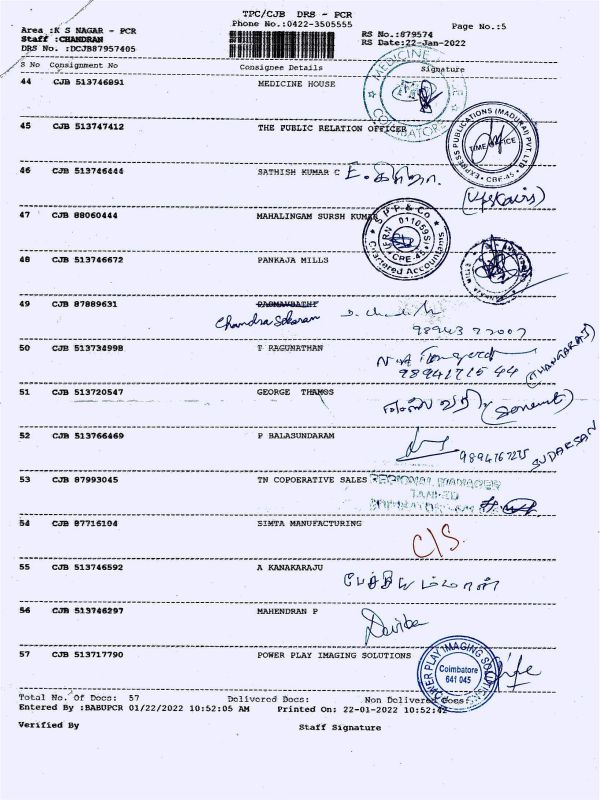 TPC/CJB DRS - PCR
Phone No.:0422-3505555
Page No.:5
Area :K S NAGAR - PCR
Staff :CHANDRAN
DRS No. :DCJB87957405
RS No.:879574
RS Date:22-Jan-2022
S No Consignment No Consignee Details Signature
44 CJB 513746891 MEDICINE HOUSE
MEDICINE
COIMBATORE
45 CJB 513747412 THE PUBLIC RELATION OFFICER
EXPRESS PUBLICATIONS (MADURAI) PVT. LTD
TIME OFFICE
CBE-45
46 CJB 513746444 SATHISH KUMAR C
(Upstairs)
47 CJB 88060444 MAHALINGAM SURSH KUMAR
S P P & Co
FRN 011059S
CBE-45
Chartered Accountants
48 CJB 513746672 PANKAJA MILLS
49 CJB 87889631 PADMAVATHY
Chandra Sekaran
50 CJB 513734998 T RAGUNATHAN
(THANGARAJ)
51 CJB 513720547 GEORGE THAMOS
52 CJB 513766469 P BALASUNDARAM
SUDARSAN
53 CJB 87993045 TN COPOERATIVE SALES
REGIONAL MANAGER
54 CJB 87716104 SIMTA MANUFACTURING
C/S.
55 CJB 513746592 A KANAKARAJU
56 CJB 513746297 MAHENDRAN P
57 CJB 513717790 POWER PLAY IMAGING SOLUTIONS
POWER PLAY IMAGING SOLUTIONS
Coimbatore
641 045
Total No. Of Docs: 57 Delivered Docs: Non Delivered Docs:
Entered By :BABUPCR 01/22/2022 10:52:05 AM Printed On: 22-01-2022 10:52:42
Verified By Staff Signature